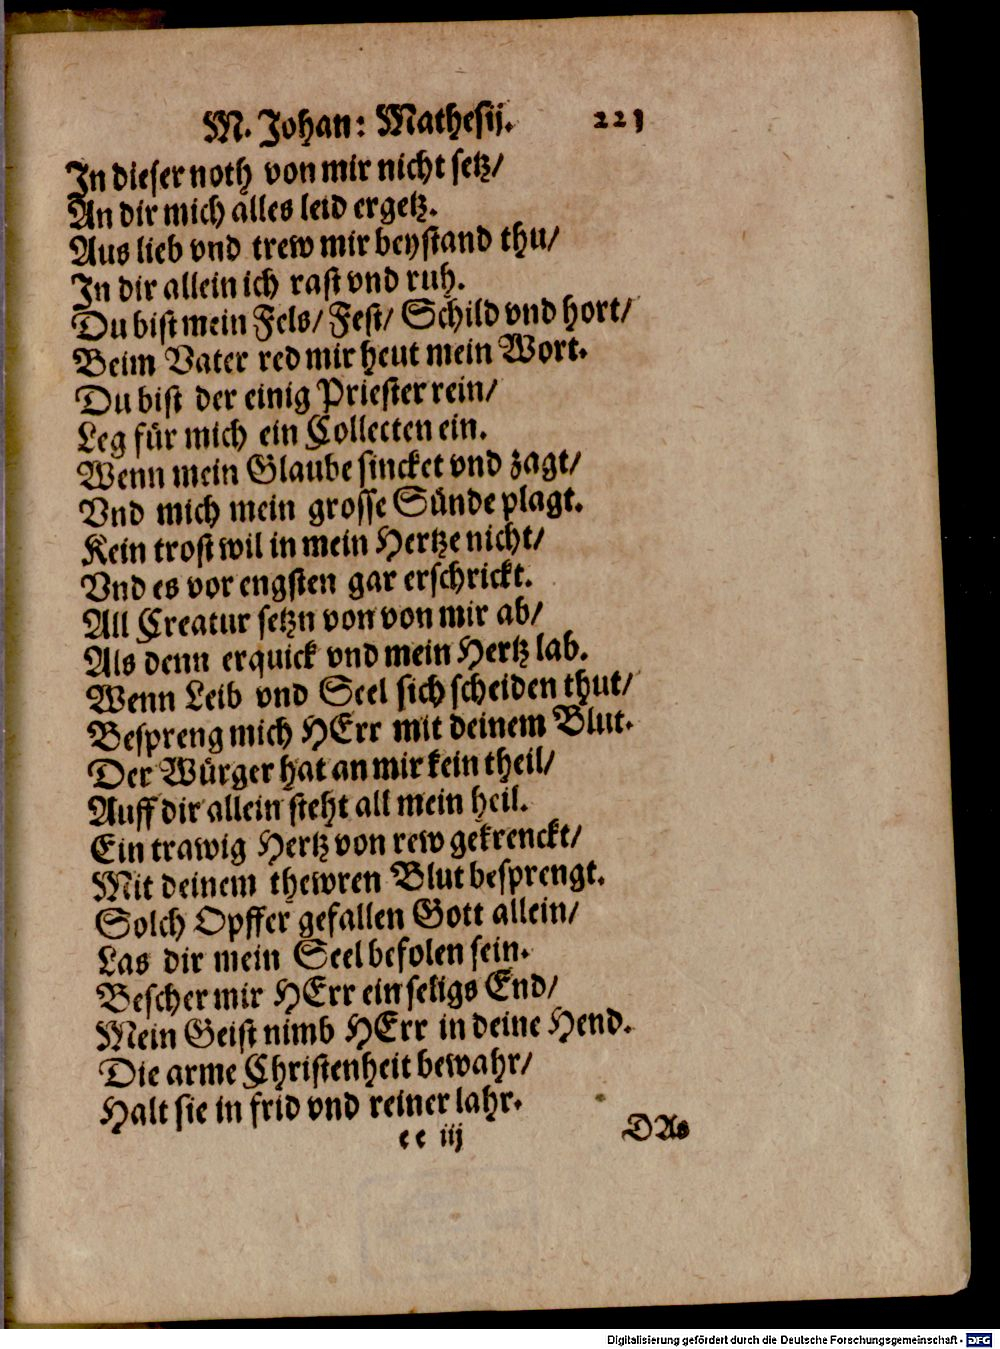 M. Johan: Mathesij. 223
In dieser noth von mir nicht setz/
An dir mich alles leid ergetz.
Aus lieb vnd trew mir beystand thu/
In dir allein ich rast vnd ruh.
Du bist mein Fels/ Fest/ Schild vnd hort/
Beim Vater red mir heut mein Wort.
Du bist der einig Priester rein/
Leg für mich ein Collecten ein.
Wenn mein Glaube sincket vnd zagt/
Vnd mich mein grosse Sünde plagt.
Kein trost wil in mein Hertze nicht/
Vnd es vor engsten gar erschrickt.
All Creatur setzn von von mir ab/
Als denn erquick vnd mein Hertz lab.
Wenn Leib vnd Seel sich scheiden thut/
Bespreng mich HErr mit deinem Blut.
Der Würger hat an mir kein theil/
Auff dir allein steht all mein heil.
Ein trawig Hertz von rew gekrenckt/
Mit deinem thewren Blut besprengt.
Solch Opffer gefallen Gott allein/
Las dir mein Seel befolen sein.
Bescher mir HErr ein seligs End/
Mein Geist nimb HErr in deine Hend.
Die arme Christenheit bewahr/
Halt sie in frid vnd reiner lahr.
ee iij DAs
Digitalisierung gefördert durch die Deutsche Forschungsgemeinschaft - DFG